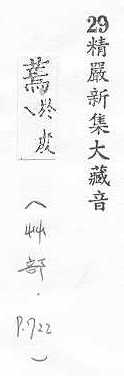 29精嚴新集大藏音
蔫
於
(艸部.P.722)